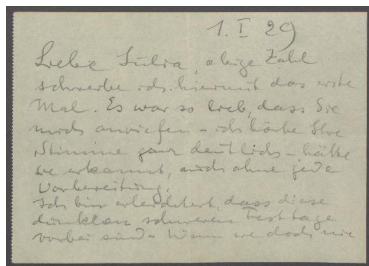 1. I 29
Liebe Julia, obige Zahl
schreibe ich hiermit das erste
Mal. Es war so lieb, dass Sie
mich anriefen - ich hörte Ihre
Stimme ganz deutlich - hätte
sie erkannt, auch ohne jede
Vorbereitung.
Ich bin erleichtert, dass diese
dunklen schweren Festtage
vorbei sind - Wenn sie doch nie